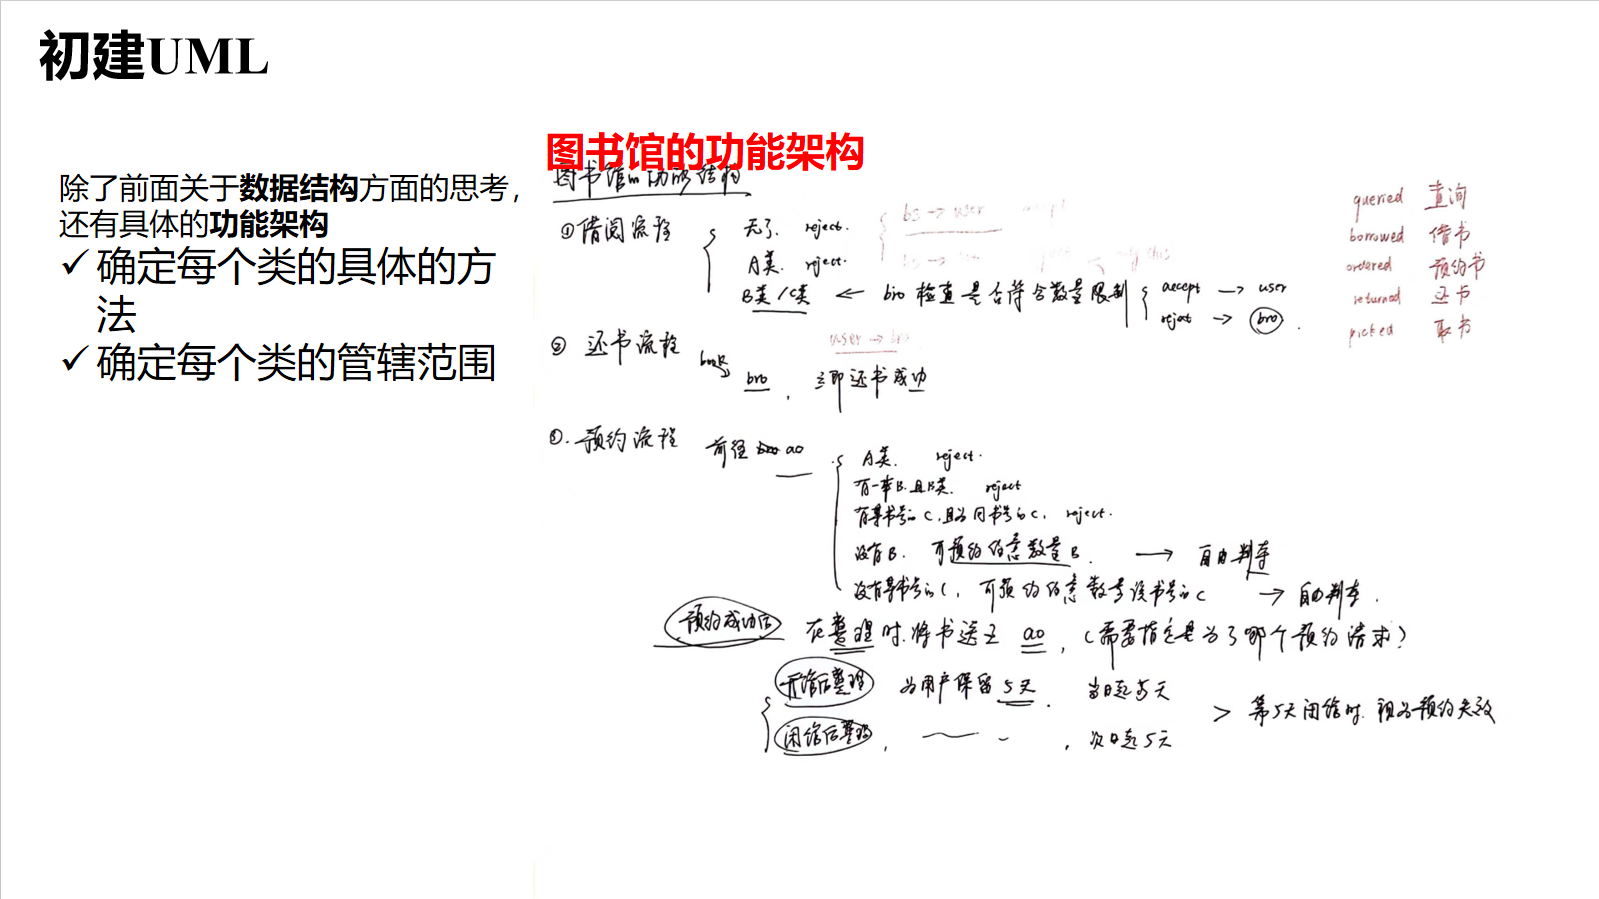 初建UML
除了前面关于数据结构方面的思考，
还有具体的功能架构
✓确定每个类的具体的方
法
✓确定每个类的管辖范围
图书馆的功能架构
图书馆的功能结构
①借阅流程
无了. reject.
A类. reject.
B类/C类 ← bro 检查是否符合数量限制
accept → user
reject → bro.
bs → user
② 还书流程
user → bro
book
bro, 立即还书成功
③. 预约流程 前往 ao
A类. reject.
有一本B.且B类. reject
有某书号的C.且为同书号的C. reject.
没有B. 可预约任意数量B. → 自由判断
没有某书号的C, 可预约任意数量该书号的C → 自由判断.
预约成功后 在整理时.将书送至 ao, (需要指定是为了哪个预约请求)
开馆后整理 为用户保留5天. 当日起5天
闭馆后整理, , 次日起5天
> 第5天闭馆时.视为预约失效
queried 查询
borrowed 借书
ordered 预约书
returned 还书
picked 取书